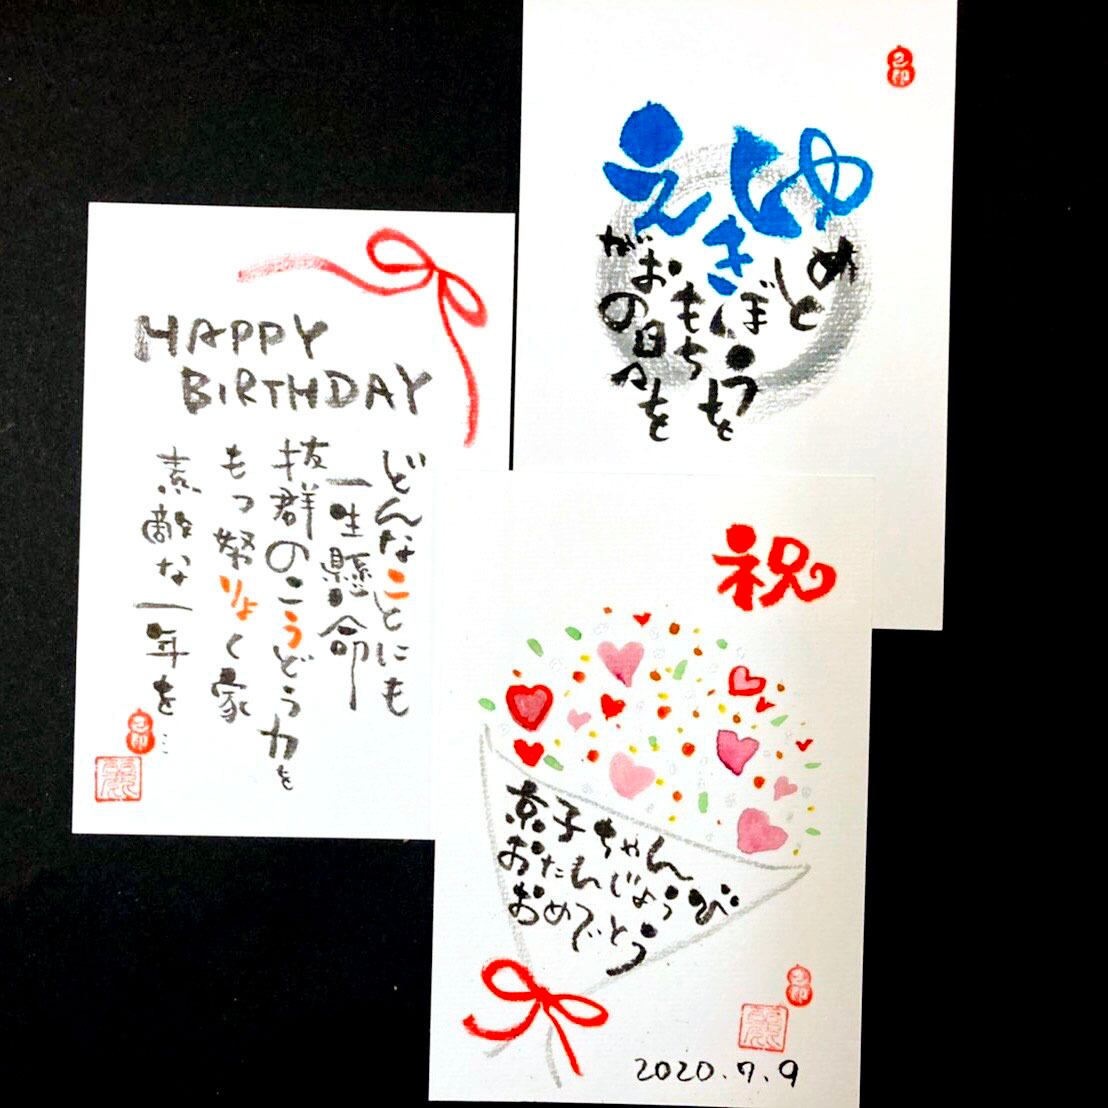 HAPPY
BIRTHDAY
どんなことにも
一生懸命
抜群のこうどう力を
もつ努りょく家
素敵な一年を…
ゆめ
きぼう
えがおの日々を
祝
京子ちゃん
おたんじょうび
おめでとう
2020.7.9